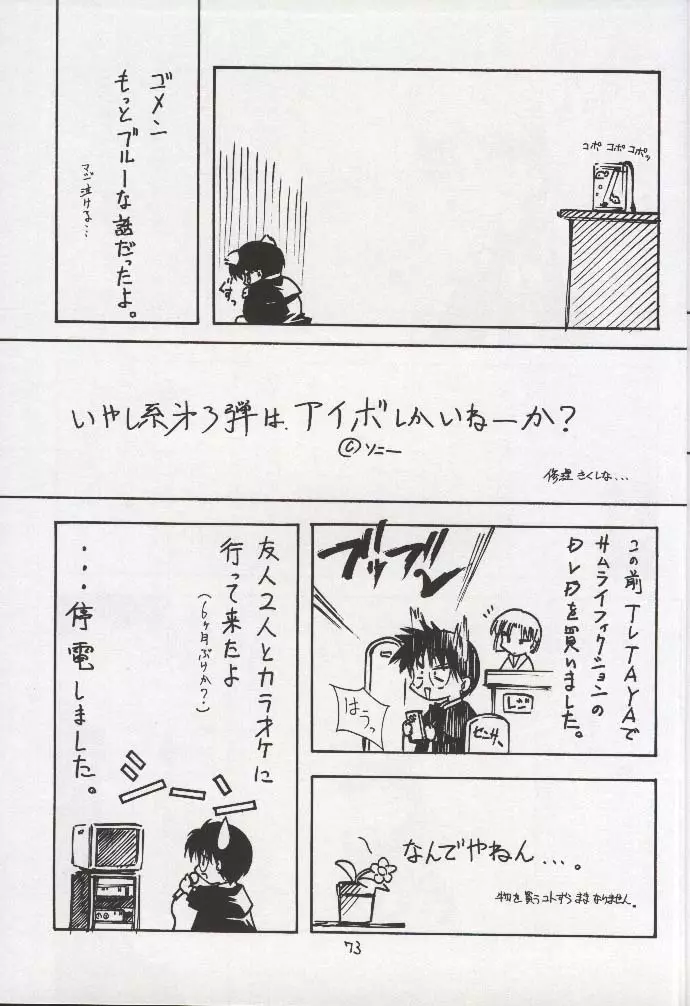 コポ コポ コポッ
ずっ
ゴメン
もっとブルーな話だったよ。
マジ泣ける…
いやし系第3弾は、アイボしかいねーか?
©ソニー
修理さくしな…
この前TSTAYAで
サムライフィクションの
DVDを買いました。
ブッブー
レジ
はうっ
センサ、
なんでやねん…。
物を買うコトすらままなりません。
友人2人とカラオケに
行って来たよ
(6ヶ月ぶりか?)
・・・停電しました。
73